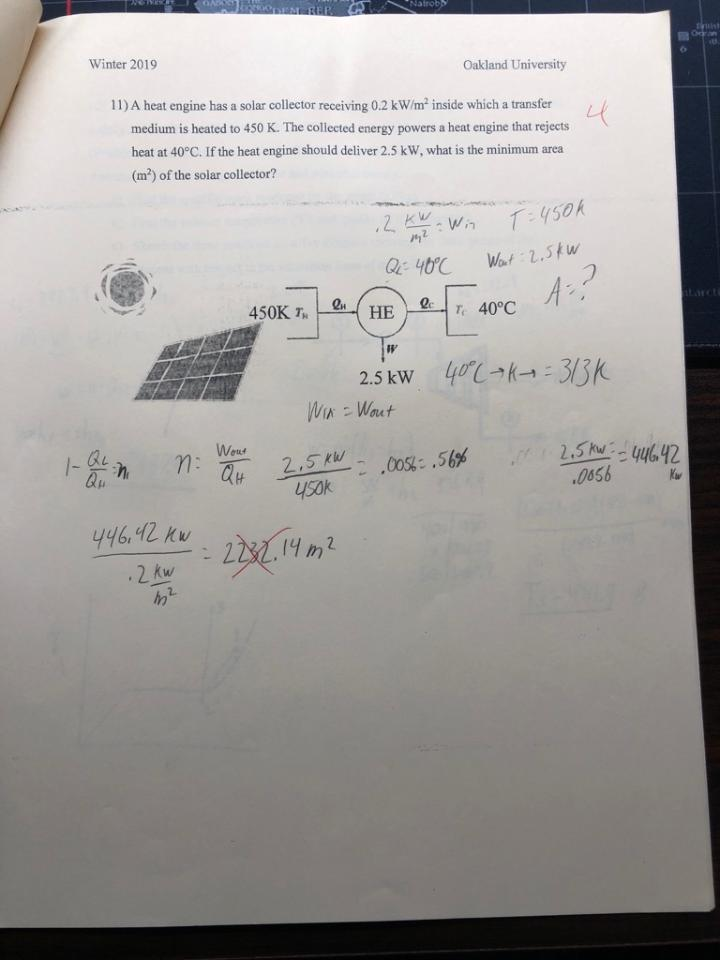 DEM. REP.
Nairobi
Winter 2019 Oakland University
11) A heat engine has a solar collector receiving 0.2 kW/m² inside which a transfer
medium is heated to 450 K. The collected energy powers a heat engine that rejects
heat at 40°C. If the heat engine should deliver 2.5 kW, what is the minimum area
(m²) of the solar collector?
4
.2 KW/m² = Win T = 450K
QL = 40°C Wout = 2.5kW
A = ?
450K TH QH HE QC TC 40°C
W
2.5 kW 40°C → K → = 313K
WIN = Wout
1 - QL/QH = n n = Wout/QH 2.5 KW/450K = .0056 = .56% 2.5 KW/.0056 = 446.42 Kw
446.42 KW/.2 KW/m² = 2232.14 m²